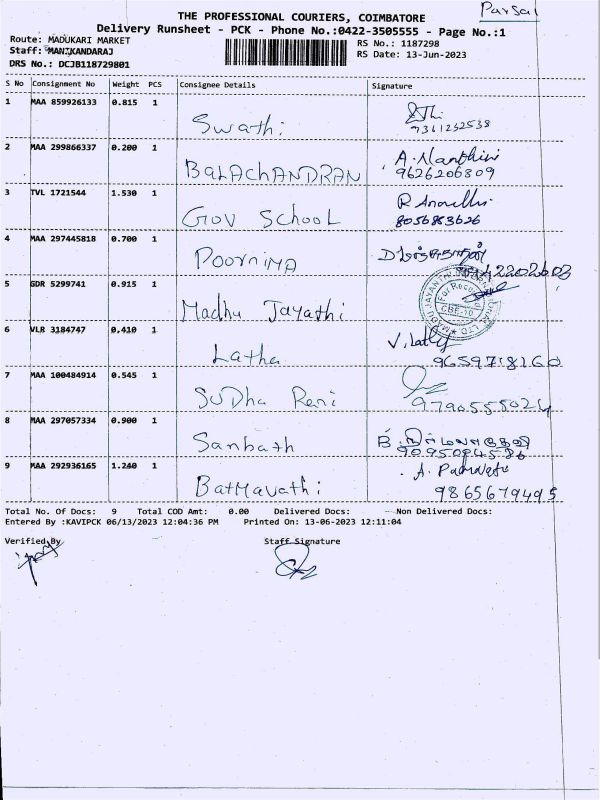 Parsal
THE PROFESSIONAL COURIERS, COIMBATORE
Delivery Runsheet - PCK - Phone No.:0422-3505555 - Page No.:1
Route: MADUKARI MARKET
Staff: MANIKANDARAJ
DRS No.: DCJB118729801
RS No.: 1187298
RS Date: 13-Jun-2023
S No Consignment No Weight PCS Consignee Details Signature
1 MAA 859926133 0.815 1 Swathi
7361232538
2 MAA 299866337 0.200 1 BALACHANDRAN A. Nanthini
9626206809
3 TVL 1721544 1.530 1 GOV SCHOOL R
8056863626
4 MAA 297445818 0.700 1 POORNIMA
5 GDR 5299741 0.915 1 Madhu Jayathi
CBE-10
6 VLR 3184747 0.410 1 Latha V. Latha
9659718160
7 MAA 100484914 0.545 1 SUDha Rani
9790555024
8 MAA 297057334 0.900 1 Sanbath
9095084586
9 MAA 292936165 1.240 1 BatMavathi A.
9865679495
Total No. Of Docs: 9 Total COD Amt: 0.00 Delivered Docs: Non Delivered Docs:
Entered By :KAVIPCK 06/13/2023 12:04:36 PM Printed On: 13-06-2023 12:11:04
Verified By Staff Signature